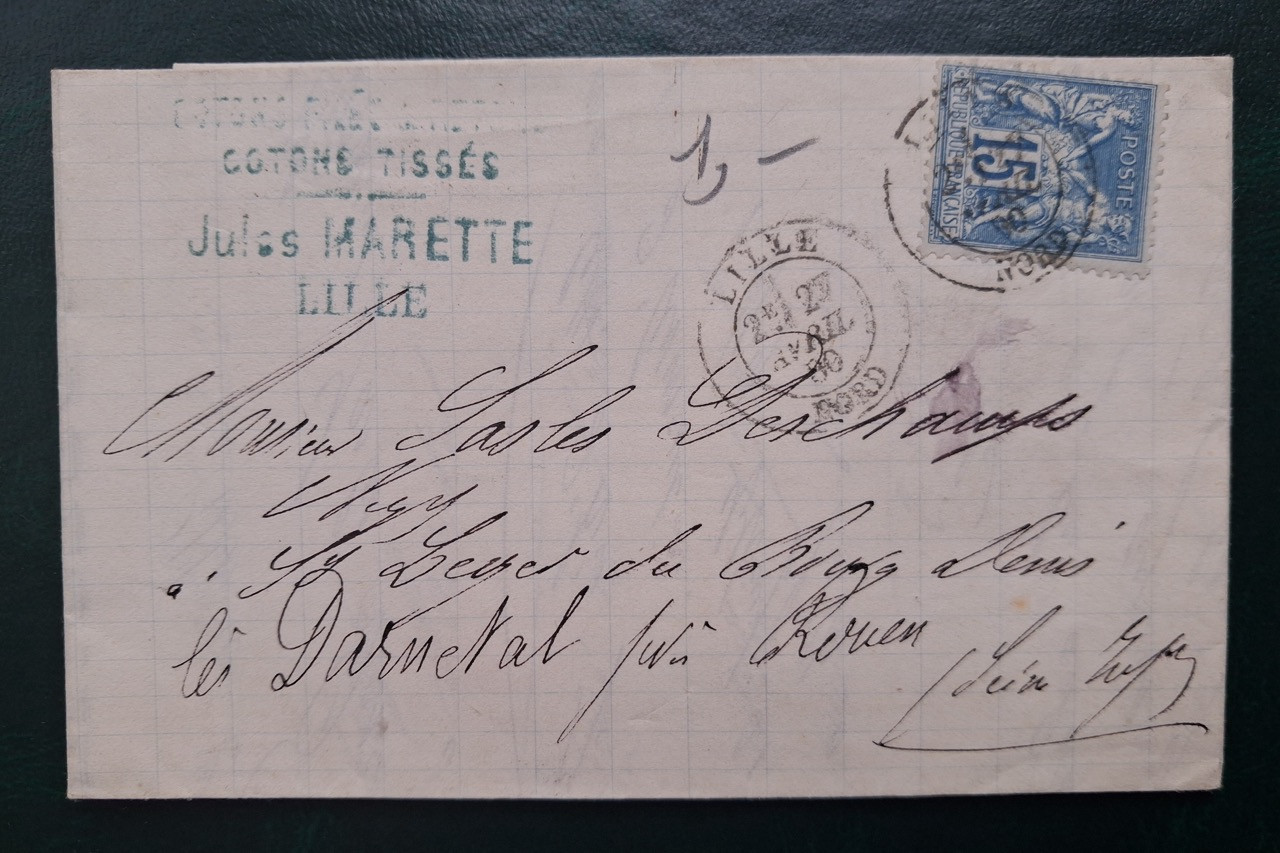 COTONS FILÉS
COTONS TISSÉS
Jules MARETTE
LILLE
1,-
RÉPUBLIQUE FRANÇAISE
15
POSTE
NORD
LILLE
2E 27
AVRIL
80
NORD
Monsieur Deschamps
à St Leger du Bourg Denis
lès Darnetal près Rouen
(Seine Infre)